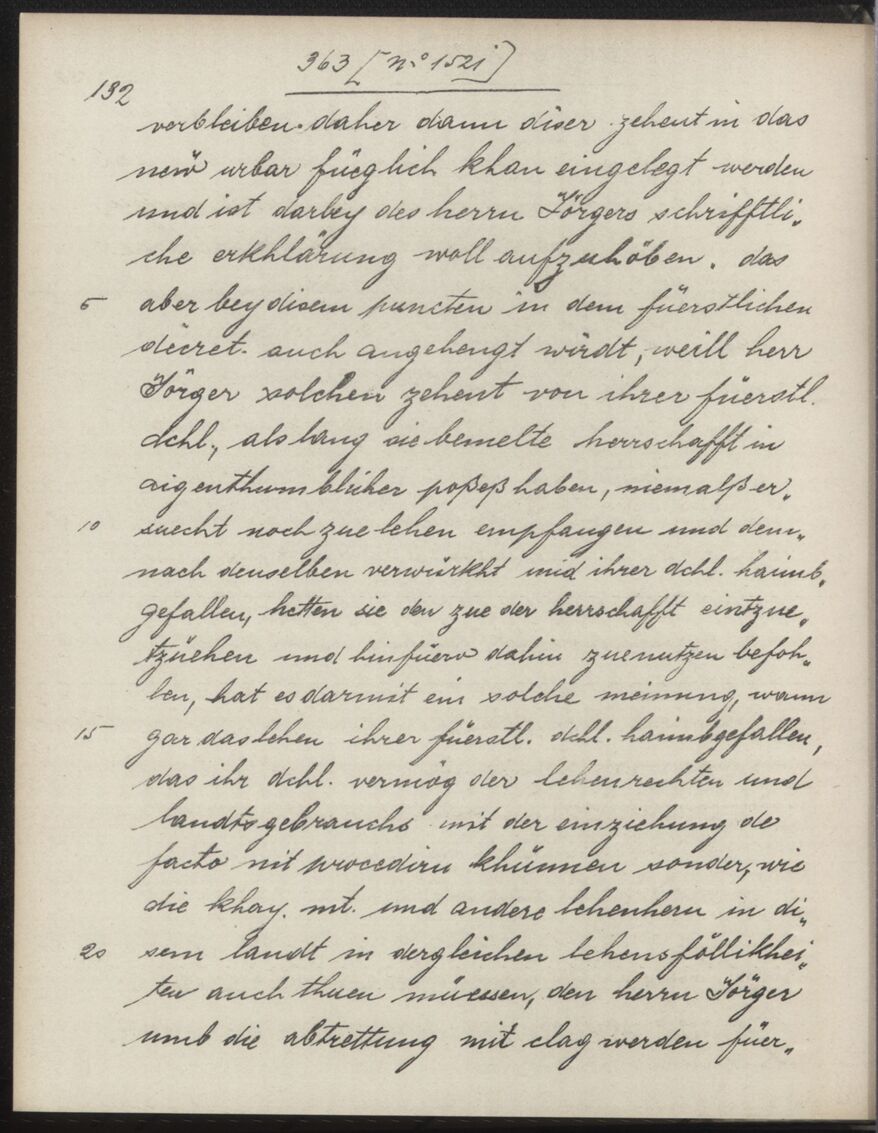 363 [n.º 152i]
132
verbleiben. daher dann diser zehent in das
new urbar füeglich khan eingelegt werden
und ist darbey des herrn Jörgers schrifftli„
che erkhlärung woll aufzuhöben. das
5 aber bey disem puncten in dem füerstlichen
decret auch angehengt würdt, weill herr
Jörger solchen zehent von ihrer füerstl.
dchl., als lang sie bemelte herrschafft in
aigenthumblicher poßeß haben, niemalß er„
10 suecht noch zue lehen empfangen und dem„
nach denselben verwürkht und ihrer dchl. haimb„
gefallen, hetten sie den zue der herrschafft eintzue„
tzüehen und hinfüero dahin zuenutzen befoh„
len, hat es darmit ein solche meinung, wann
15 gar das lehen ihrer füerstl. dchl. haimbgefallen,
das ihr dchl. vermög der lehenrechten und
landtsgebrauchs mit der einziehung de
facto nit procedirn khünnen sonder, wie
die khay. mt. und andere lehenhern in di„
20 sem landt in dergleichen lehensföllikhei„
ten auch thuen müessen, den herrn Jörger
umb die abtrettung mit clag werden füer„